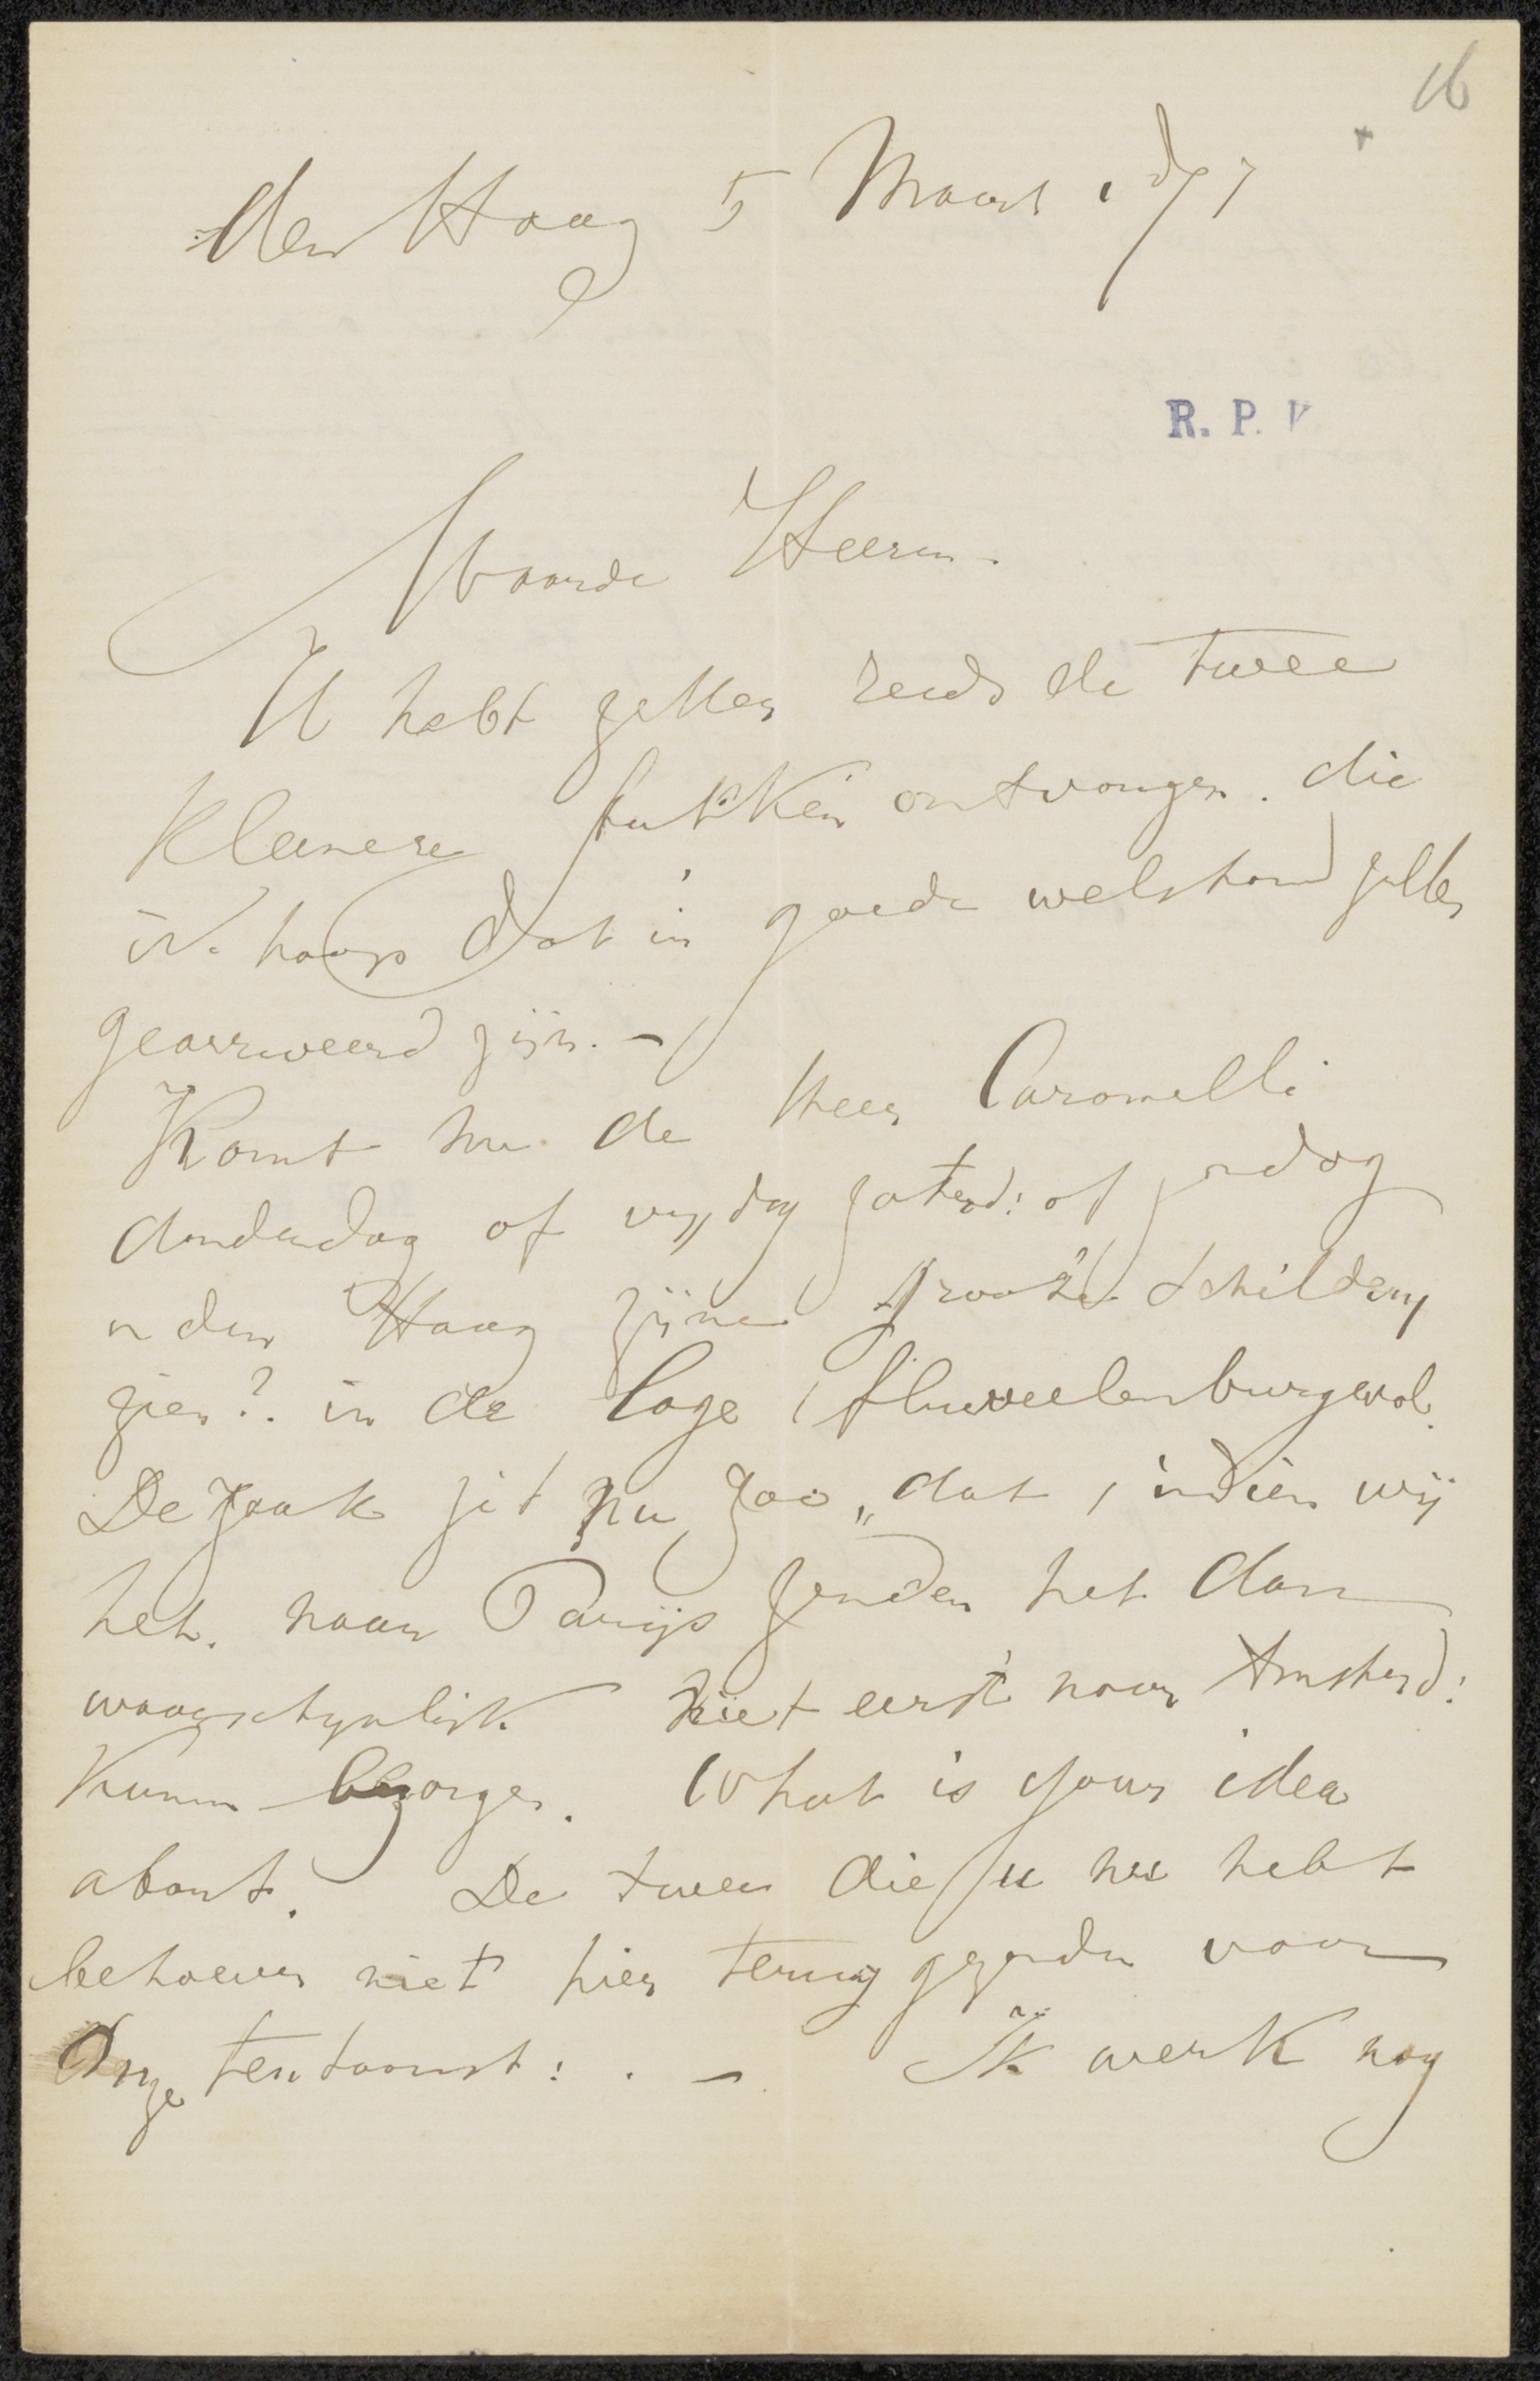 16
den Haag 5 Maart
R. P. V
Waarde Heeren.
U hebt zekker reeds de twee
kleinere stukken ontvangen. die
ik hoop dat in goede welstand zullen
gearriveerd zijn. -
Komt nu de Heer Caramelli
donderdag of vrydag zaterd: of zondag
in den Haag zijne groote schildery
zien? in de loge, fluweelenburgwal.
De zaak zit nu zoo, dat, indien wij
het. naar Parijs zenden het dan
waarschynlijk niet eerst naar Amsterd:
kunnen bezorgen. What is your idea
about. De twee die u nu hebt
behoeven niet hier terug gezonden voor
Onze tentoonst: . - Ik werk nog